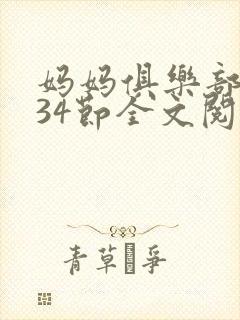 妈妈俱樂部
34節全文閱
青草 爭